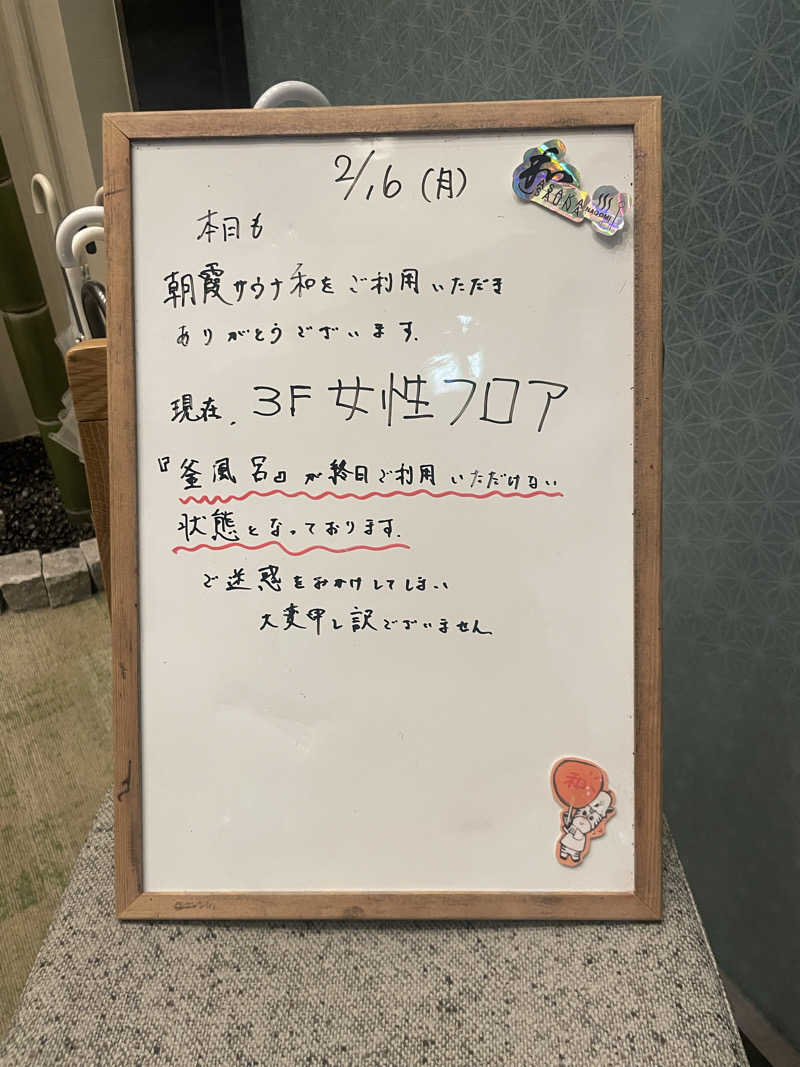 2/16 (月)
和
ASAKA
SAUNA
NAGOMI
本日も
朝霞サウナ和をご利用いただき
ありがとうございます.
現在, 3F 女性フロア
『釜風呂』が終日ご利用いただけない
状態となっております.
ご迷惑をおかけしてしまい
大変申し訳ございません
和